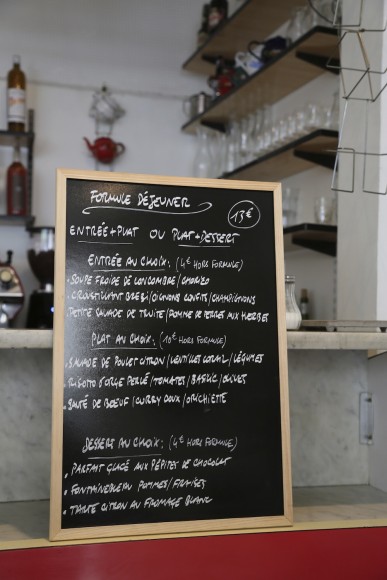 FORMULE DÉJEUNER
13€
ENTRÉE+PLAT OU PLAT+DESSERT
ENTRÉE AU CHOIX: (4€ HORS FORMULE)
• SOUPE FROIDE DE CONCOMBRE/CHORIZO
• CROUSTILLANT BREBI/OIGNONS CONFITS/CHAMPIGNONS
• PETITE SALADE DE TRUITE/POMME DE TERRES AUX HERBES
PLAT AU CHOIX: (10€ HORS FORMULE)
• SALADE DE POULET CITRON/LENTILLES CORAIL/LÉGUMES
• RISOTTO D'ORGE PERLÉ/TOMATES/BASILIC/OLIVES
• SAUTÉ DE BOEUF/CURRY DOUX/ORICHIETTE
DESSERT AU CHOIX: (4€ HORS FORMULE)
• PARFAIT GLACÉ AUX PÉPITES DE CHOCOLAT
• FONTAINEBLEAU POMMES/FRAISES
• TARTE CITRON AU FROMAGE BLANC